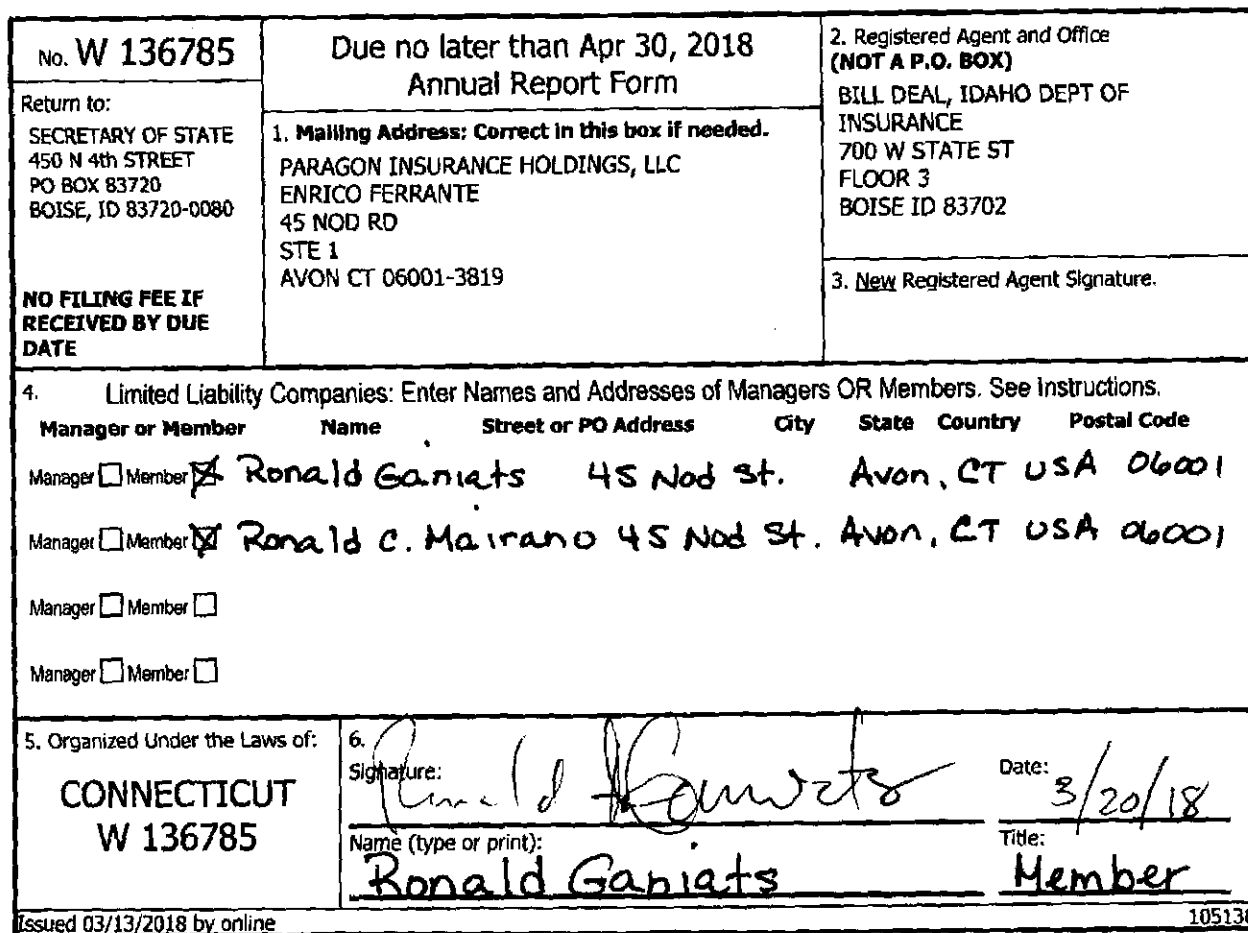 No. W 136785
Return to:
SECRETARY OF STATE
450 N 4th STREET
PO BOX 83720
BOISE, ID 83720-0080
NO FILING FEE IF
RECEIVED BY DUE
DATE
Due no later than Apr 30, 2018
Annual Report Form
1. Mailing Address: Correct in this box if needed.
PARAGON INSURANCE HOLDINGS, LLC
ENRICO FERRANTE
45 NOD RD
STE 1
AVON CT 06001-3819
2. Registered Agent and Office
(NOT A P.O. BOX)
BILL DEAL, IDAHO DEPT OF
INSURANCE
700 W STATE ST
FLOOR 3
BOISE ID 83702
3. New Registered Agent Signature.
4. Limited Liability Companies: Enter Names and Addresses of Managers OR Members. See Instructions.
Manager or Member Name Street or PO Address City State Country Postal Code
Manager Member Ronald Ganiats 45 Nod St. Avon, CT USA 06001
Manager Member Ronald C. Mairano 45 Nod St. Avon, CT USA 06001
Manager Member
Manager Member
5. Organized Under the Laws of:
CONNECTICUT
W 136785
6.
Signature:
Date: 3/20/18
Name (type or print):
Ronald Ganiats
Title:
Member
Issued 03/13/2018 by online
105138